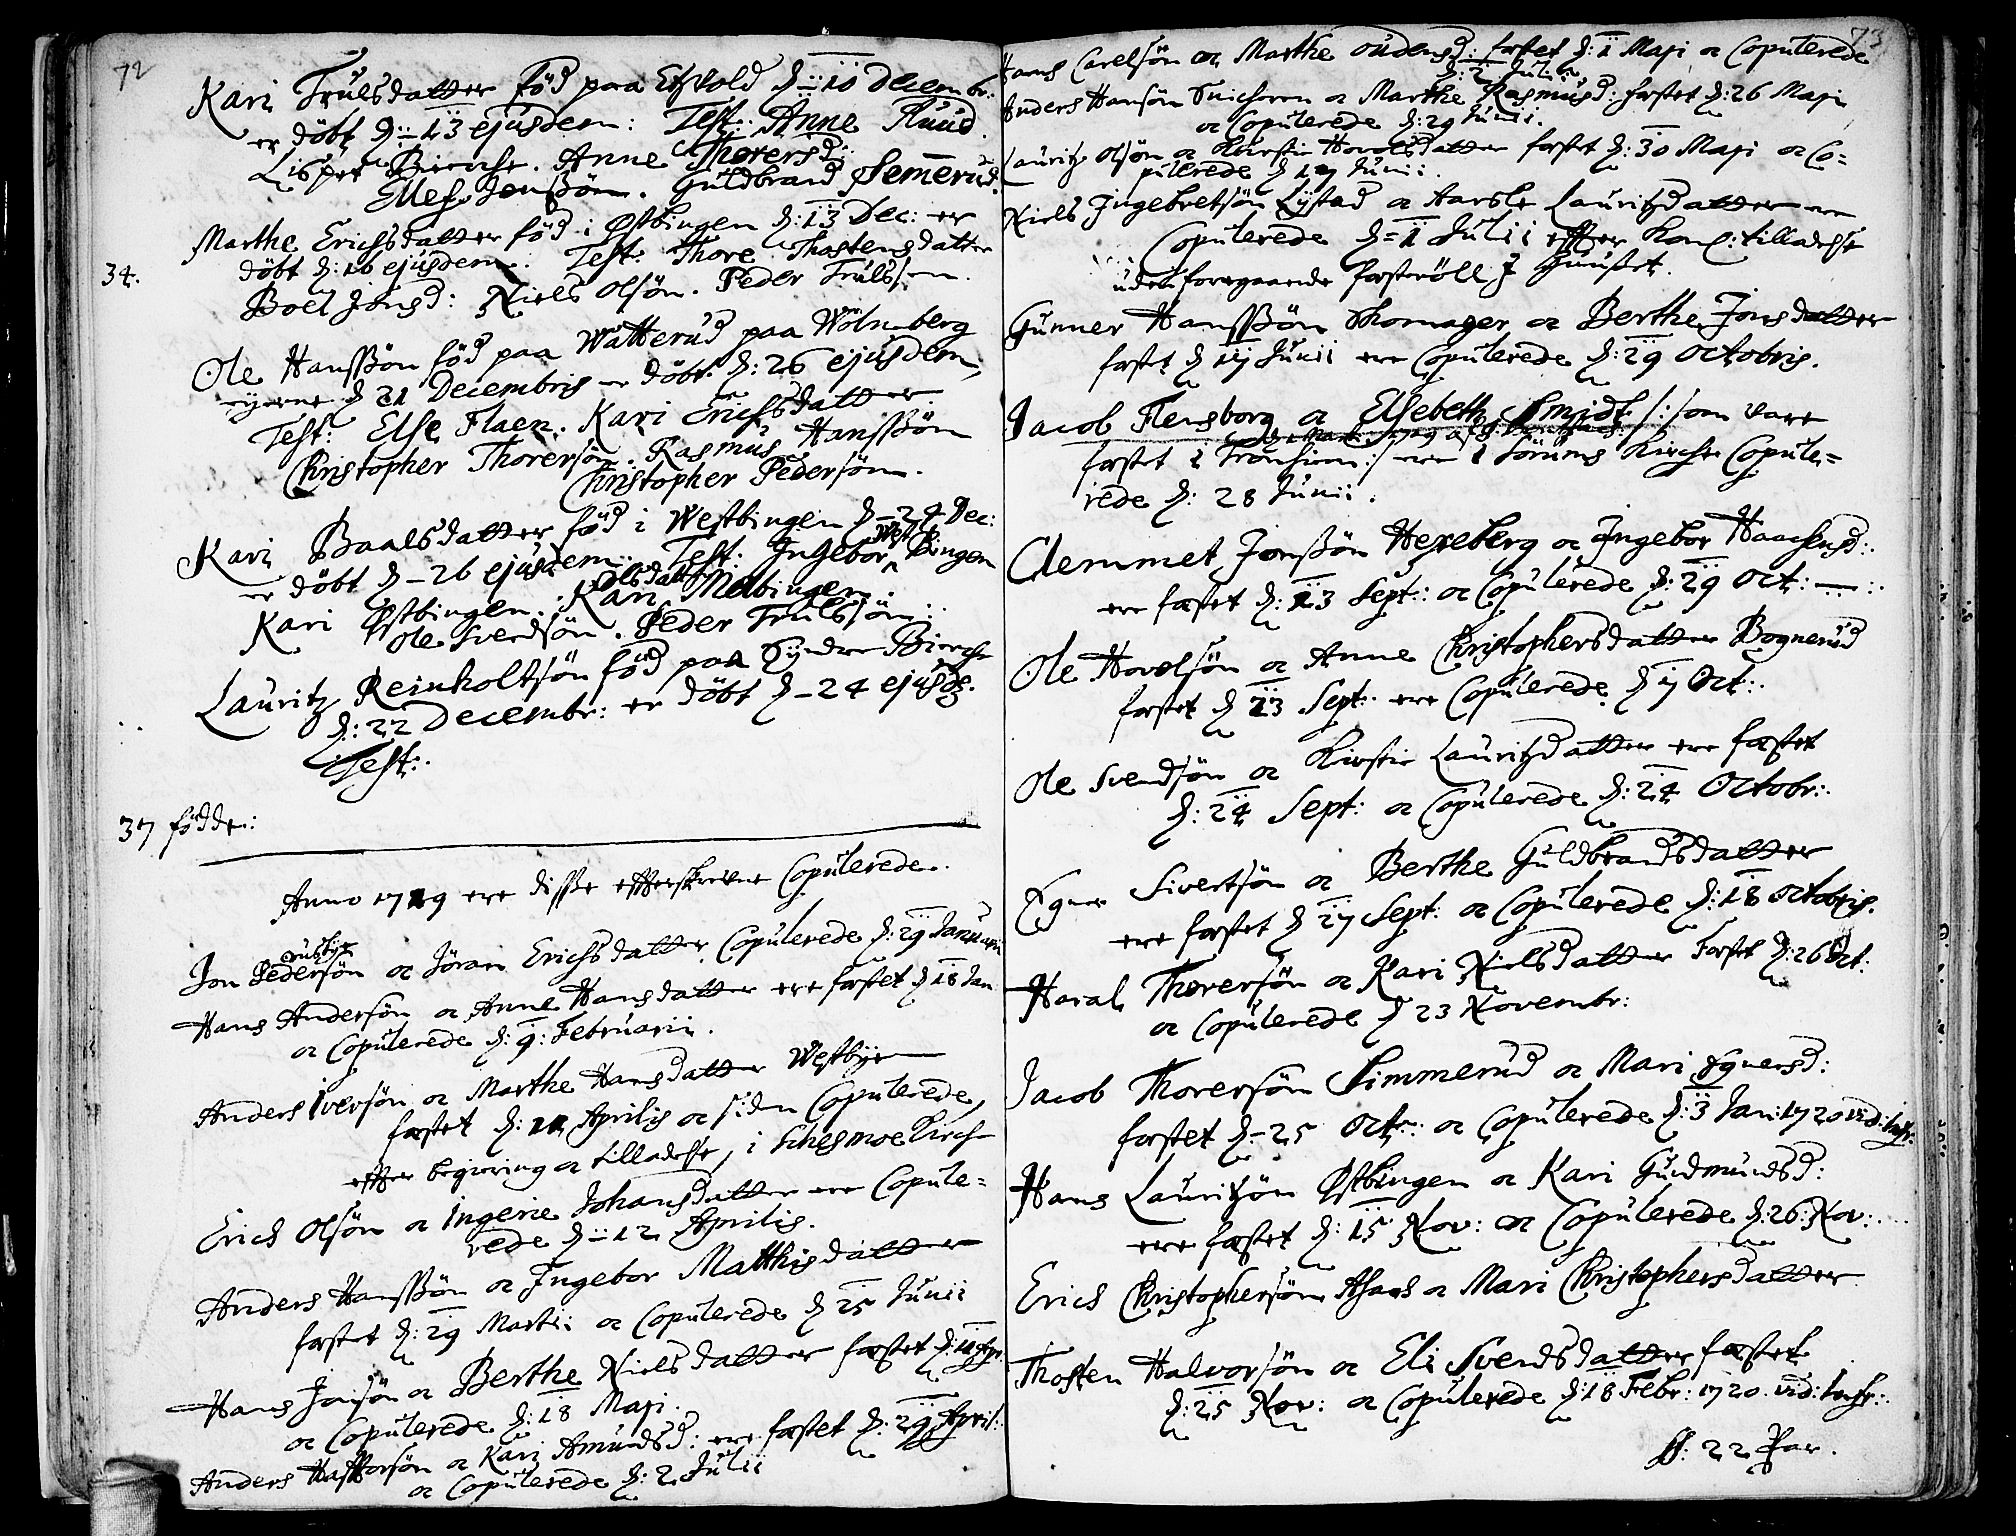 72
Kari Trulsdatter föd paa Eshold d: 10 Decembr:
er döbt d: 13 ejusdem: Test: Anne Ruud.
Lisper Bierche. Anne Thorersd:
Ellef Jonssön. Guldbrand Semerud.
Marthe Erichsdatter föd i Østbingen d: 13 Dec: er
34.
döbt d: 16 ejusdem. Test: Thore Thostensdatter
Boel Jonsd: Niels Olsön. Peder Trulssön.
Ole Hanssön föd paa Watterud paa Wölneberg
eyerne d 21 Decembris er döbt d: 26 ejusdem,
Test: Else Flaen. Kari Erichsdatter
Christopher Thorersön. Rasmus Hanssön
Christopher Pedersön.
Kari Baalsdatter föd i Westbingen d- 24 Dec:
er döbt d- 26 ejusdem: Test: Ingebor West Bingen
Kari Østbingen. Kari Olsdatt Melbingen.
Ole Svendsön. Peder Trulssön:
Lauritz Reinholtsön föd paa Syndre Bierche
d: 22 Decembr: er döbt d- 24 ejusde.
Test:
37 födde:
Anno 1719 ere disse effterskrevne Copulerede.
Jon Pedersön oc Jöran Erichsdatter Copulerede d: 29 Januarii
Hans Andersön oc Anne Hansdatter ere fæstet d 18 Jan
oc Copulerede d: 9: Februarii.
Anders Iversön oc Marthe Hansdatter Westbye
fæstet d: 11 Aprilis oc siden Copulerede,
effter begiering oc tilladelse, i Schesmoe Kirche
Erich Olsön oc Ingerie Johansdatter ere Copule=
rede d: 12 Aprilis.
Anders Hanssön oc Ingebor Matthisdatter
fæstet d: 29 Martii oc Copulerede d 25 Junii
Hans Jonsön oc Berthe Nielsdatter fæstet d: 11 Apr
oc Copulerede d: 18 Maji.
Anders Hafforsön oc Kari Amundsd: ere fæstet d: 29 April:
oc Copulerede d: 2 Julii
73
Hans Carelsön oc Marthe Oudensd: fæstet d: 1 Maji oc Copulerede
d: 2 Julii
Anders Hansön Snicheren oc Marthe Rasmusd: fæstet d: 26 Maji
oc Copulerede d: 29 Junii.
Lauritz Olsön oc Kirstie Hovelsdatter fæstet d: 30 Maji oc Co=
pulerede d 17 Junii.
Niels Ingebretsön Lystad oc Aarsle Lauritzdatter ere
Copulerede d= 1 Julii effter Kong: tilladelse
uden foregaaende fæsteröll J Huuset.
Gunner Hanssön Thomager oc Berthe Jonsdatter
fæstet d 17 Junii ere Copulerede d: 29 Octobris.
Jacob Flensborg oc Elsebeth Smidt /: som vare
fæstet i Tronhiem :/ ere i Sörums Kirche Copule=
rede d: 28 Junii.
Clemmet Jonssön Hexeberg oc Ingebor Haachensd:
ere fæstet d: 13 Sept: oc Copulerede d: 29 Oct:
Ole Hovelsön oc Anne Christophersdatter Bognerud
fæstet d 23 Sept: ere Copulerede d 17 Oct:
Ole Svendsön oc Kirstie Lauritzdatter ere fæstet
d: 24 Sept: oc Copulerede d: 24 Octobr:
Egner Sivertsön oc Berthe Guldbrandsdatter
ere fæstet d 27 Sept: oc Copulerede d: 18 Octobris.
Haral Thorersön oc Kari Nielsdatter Fæstet d: 26 Oct:
oc Copulerede d 23 Novembr:
Jacob Thorersön Simmerud oc Mari Egnersd:
fæstet d- 25 Oct: oc Copulerede d: 3 Jan: 1720 vid: infr:
Hans Lauritzön Østbingen oc Kari Gudmundsd:
ere fæstet d: 15 Nov: oc Copulerede d: 26: Nov:
Erich Christophersön Asach oc Mari Christophersdatter
Thosten Halvorsön oc Eli Svendsdatter fæstet
d: 25 Nov: oc Copulerede d: 18 Febr: 1720. vid: infr:
ff: 22 Par.